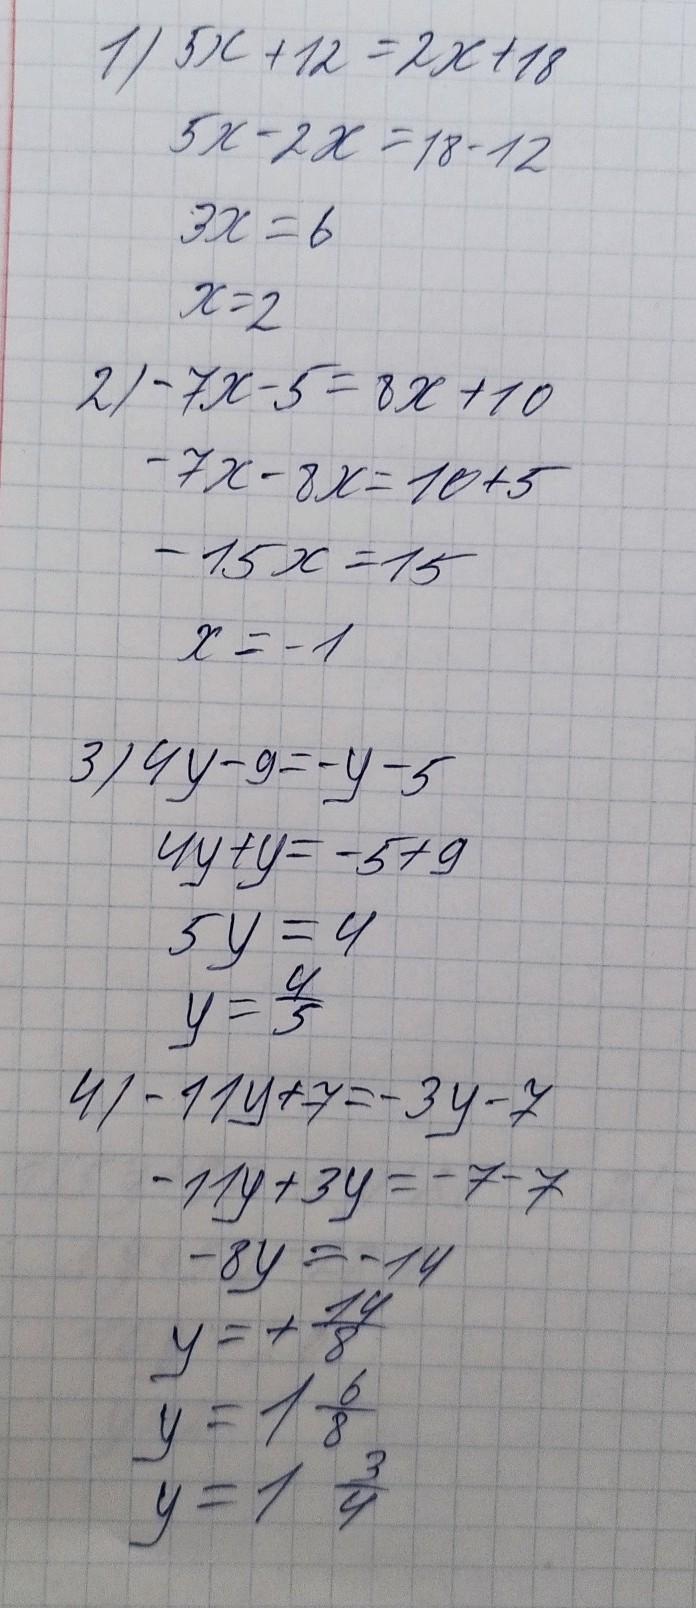 1) 5x + 12 = 2x + 18
5x - 2x = 18 - 12
3x = 6
x = 2
2) -7x - 5 = 8x + 10
-7x - 8x = 10 + 5
-15x = 15
x = -1
3) 4y - 9 = -y - 5
4y + y = -5 + 9
5y = 4
y = 4/5
4) -11y + 7 = -3y - 7
-11y + 3y = -7 - 7
-8y = -14
y = + 14/8
y = 1 6/8
y = 1 3/4